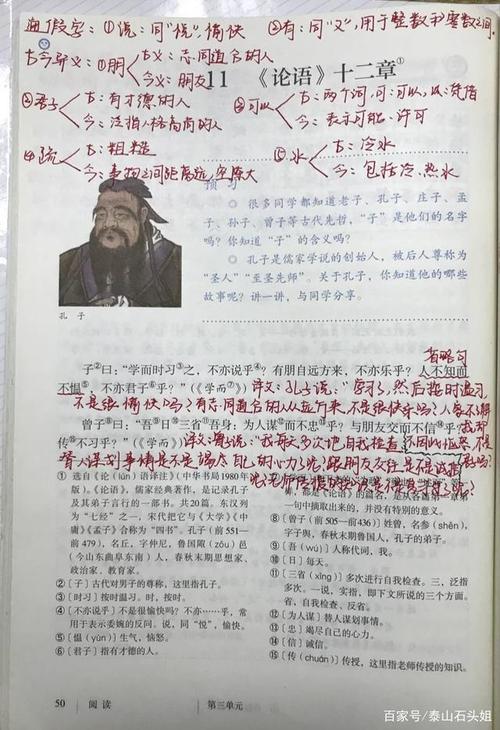 通假字：①说：同“悦”，愉快 ②有：同“又”，用于整数和零数之间
古今异义：①朋 古义：志同道合的人
今义：朋友
11 《论语》十二章①
②君子 古：有才德的人
今：泛指人格高尚的人
③可以 古：两个词，可：可以，以：凭借
今：表示可能、许可
④疏 古：粗糙
今：事物之间距离远，空隙大
⑤水 古：冷水
今：包括冷、热水
预习
○ 很多同学都知道老子、孔子、庄子、孟
子、孙子、曾子等古代先哲，“子”是他们的名字
吗？你知道“子”的含义吗？
○ 孔子是儒家学说的创始人，被后人尊称为
“圣人”“至圣先师”。关于孔子，你知道他的哪些
故事呢？讲一讲，与同学分享。
孔子
省略句
子②曰：“学而时习③之，不亦说乎④？有朋自远方来，不亦乐乎？人不知而
不愠⑤，不亦君子⑥乎？”（《学而⑦》）译文：孔子说：“学习了，然后按时温习，
不是很愉快吗？有志同道合的人从远方来，不是很快乐吗？人家不了解
曾子⑧曰：“吾⑨日⑩三省⑪吾身：为人谋⑫而不忠⑬乎？与朋友交而不信⑭乎？
我，却不因此恼怒，不
传⑮不习乎？”（《学而》）译文：曾子说：“我每天多次地自我检查
替人谋划事情是不是竭尽自己的心力了呢？跟朋友交往是不是诚实
① 选自《论（lún）语译注》（中华书局1980年
版）。《论语》，儒家经典著作，是记录孔子
及其弟子言行的一部书。共20篇。东汉列
为“七经”之一，宋代把它与《大学》《中
庸》《孟子》合称为“四书”。孔子（前551—
前479），名丘，字仲尼，鲁国陬（zōu）邑
（今山东曲阜东南）人，春秋末期思想家、
政治家、教育家。
②〔子〕古代对男子的尊称，这里指孔子。
③〔时习〕按时温习。时，按时。
④〔不亦说乎〕不是很愉快吗？不亦……乎，常
用于表示委婉的反问。说，同“悦”，愉快。
⑤〔愠（yùn）〕生气，恼怒。
⑥〔君子〕指有才德的人。
摘取出来的，并没有特别的意义。
⑧〔曾子（前505—前436）〕姓曾，名参（shēn），
字子舆，春秋末期鲁国人，孔子的弟子。
⑨〔吾（wú）〕人称代词，我。
⑩〔日〕每天。
⑪〔三省（xǐng）〕多次进行自我检查。三，泛指
多次。一说，实指，即下文所说的三个方面。
省，自我检查、反省。
⑫〔为人谋〕替人谋划事情。
⑬〔忠〕竭尽自己的心力。
⑭〔信〕诚信。
⑮〔传（chuán）〕传授，这里指老师传授的知识。
50 阅读 第三单元
百家号/泰山石头姐